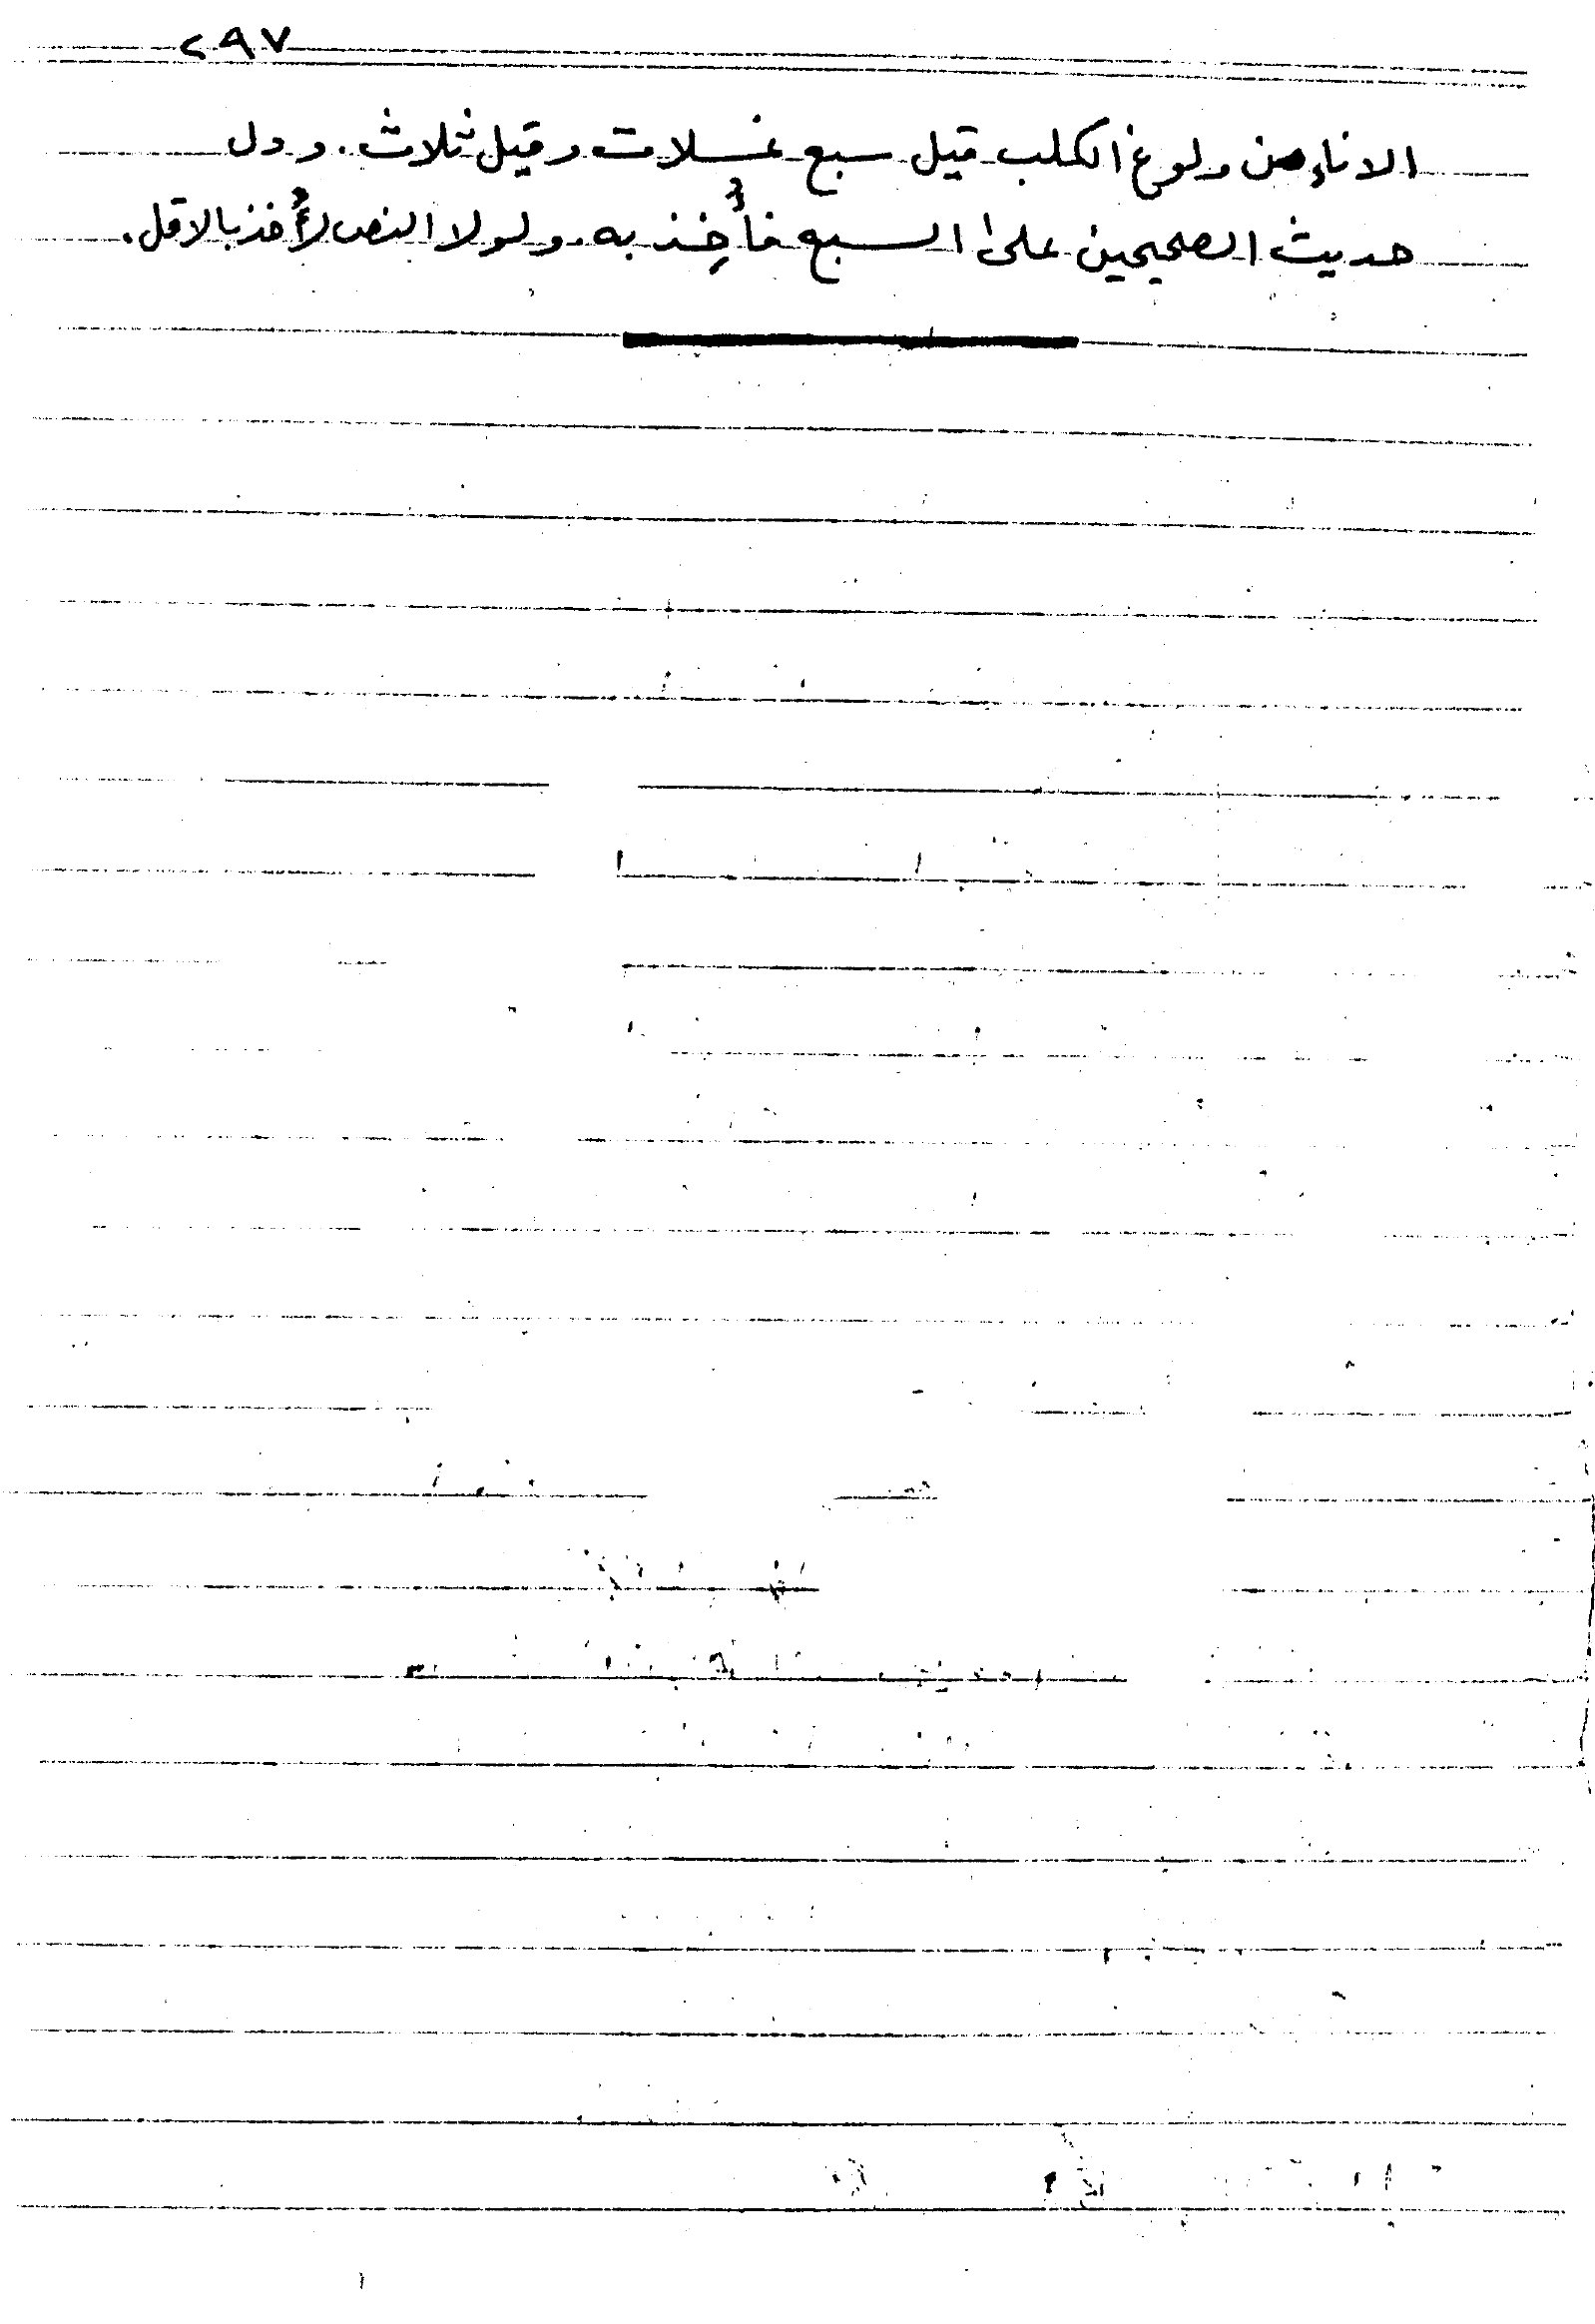 ٢٩٧
الاناء من ولوغ الكلب قيل سبع غسلات وقيل ثلاث. ودل
حديث الصحيحين على السبع فأُخِذ به. ولولا النص لأُخذ بالاقل.